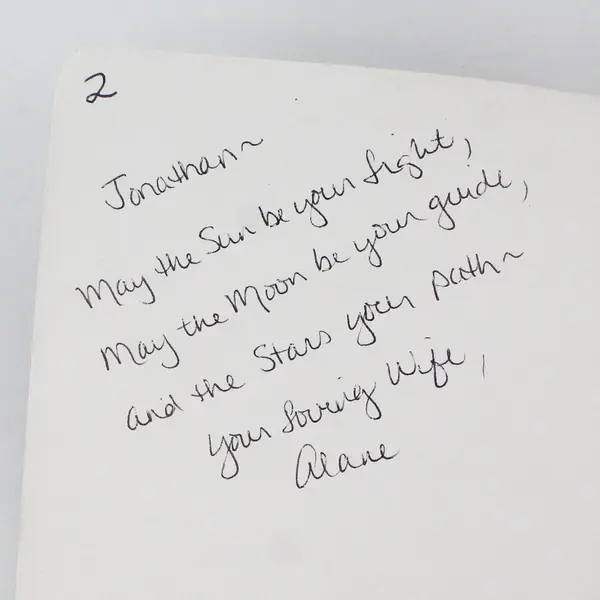 2
Jonathan~
May the Sun be your light,
May the Moon be your guide,
and the Stars your path~
your loving Wife,
Alane